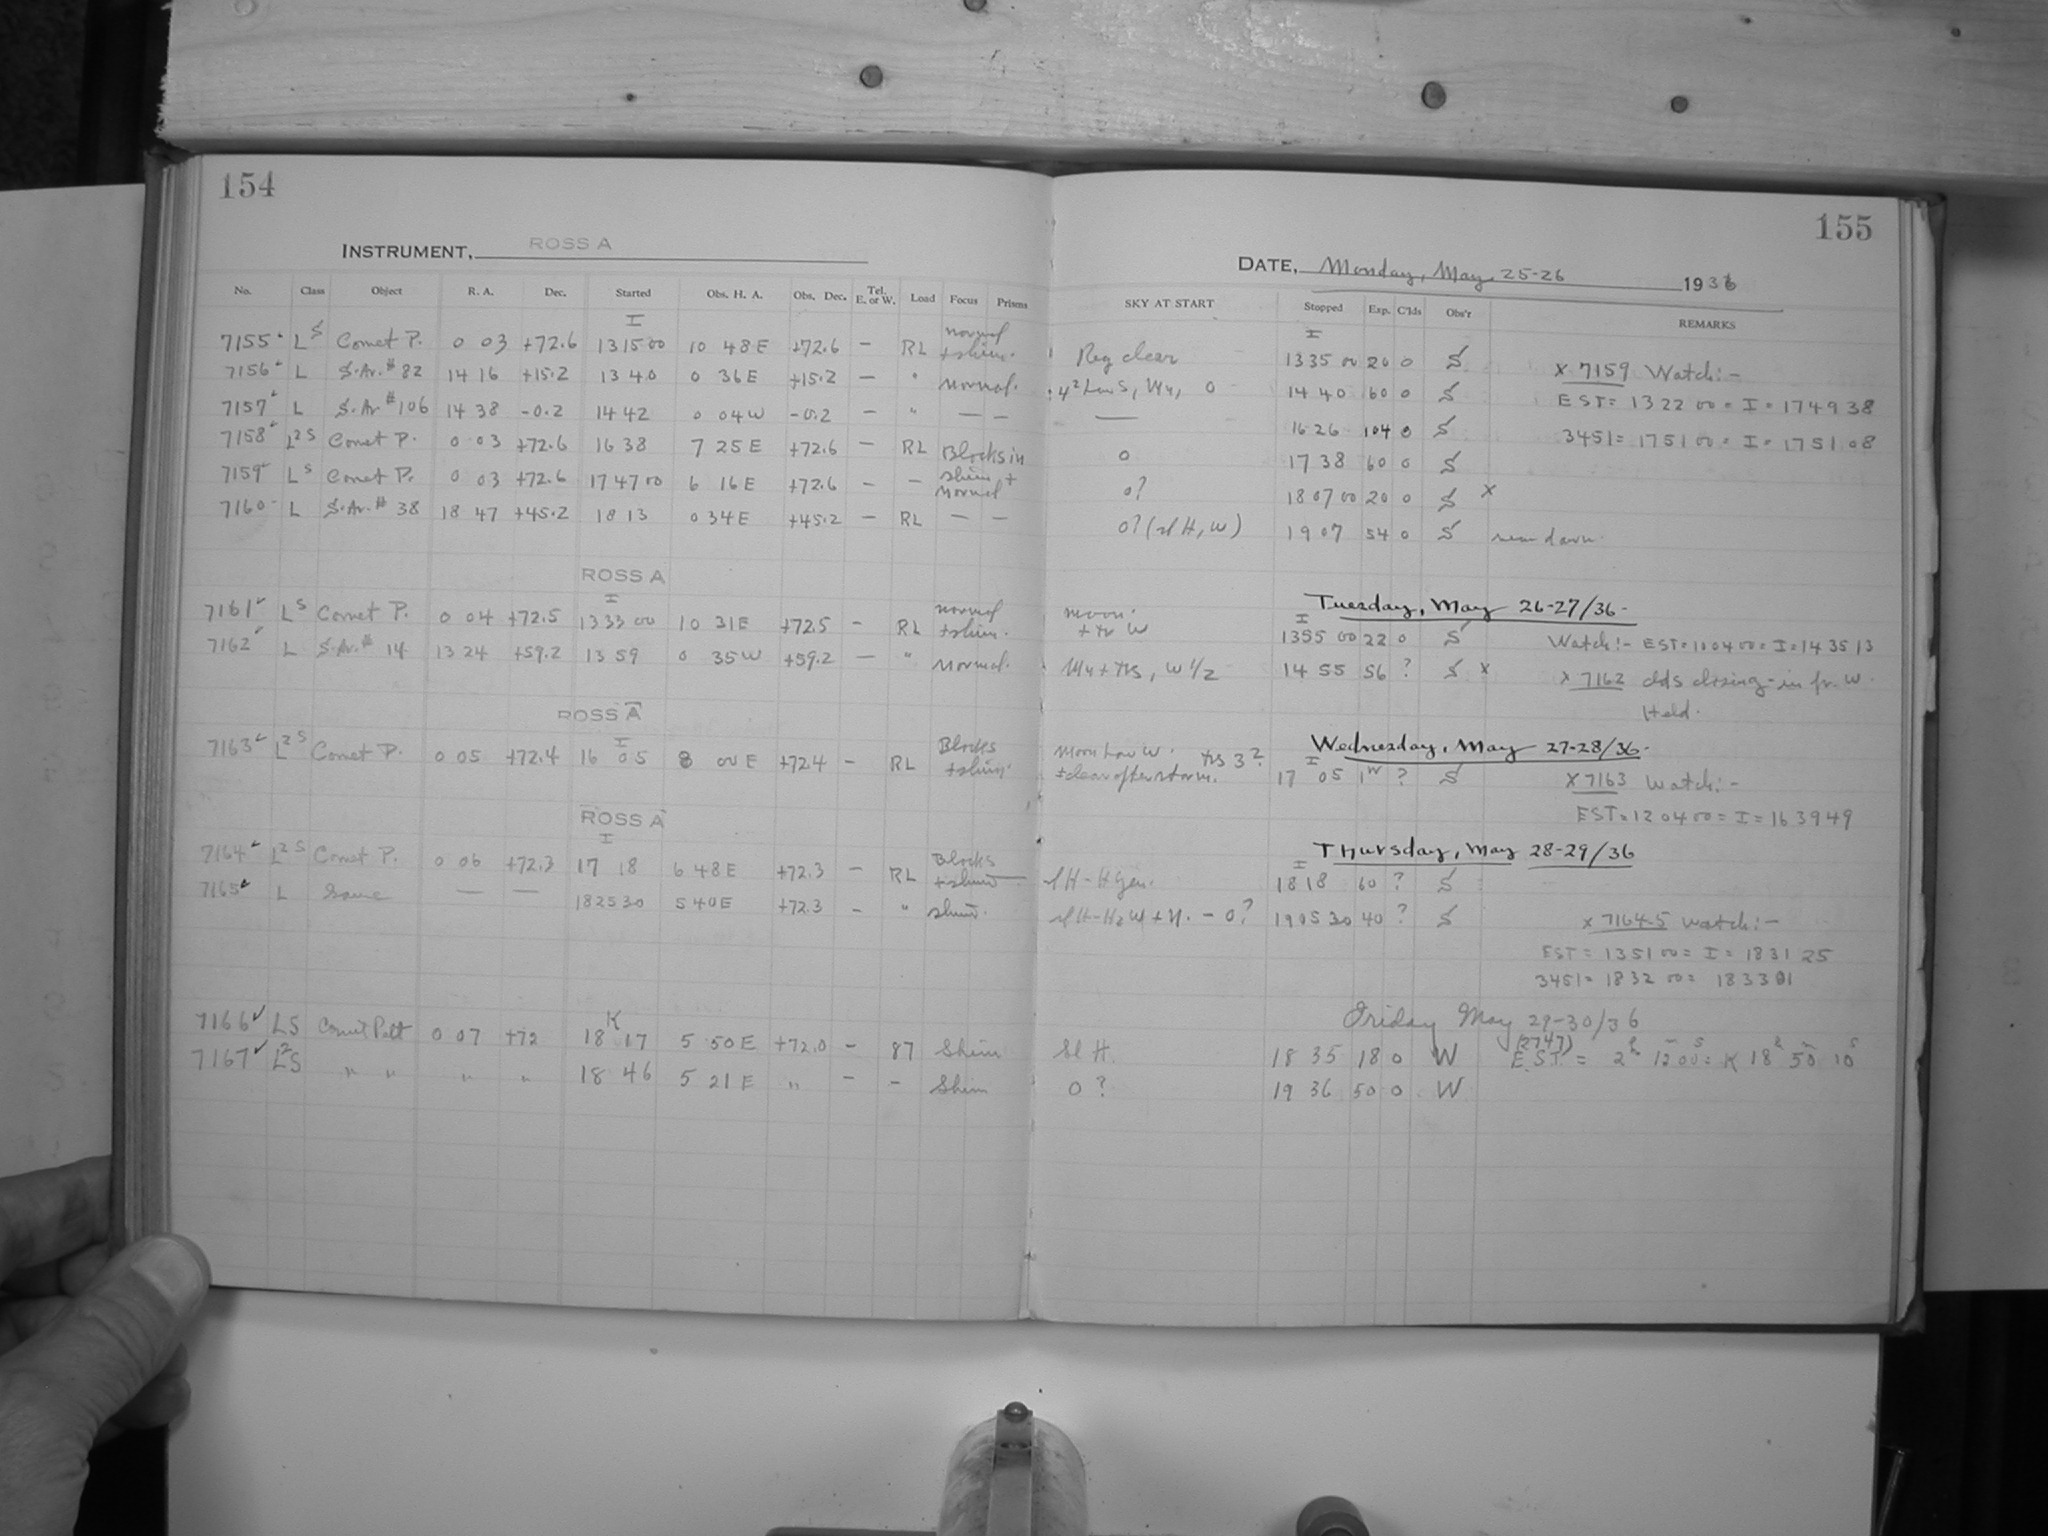 154
INSTRUMENT, ROSS A
No. Class Object R. A. Dec. Started Obs. H. A. Obs. Dec. Tel. E. or W. Load Focus Prisms
I
7155 L S Comet P. 0 03 +72.6 13 15 00 10 48 E +72.6 — RL normal + shim.
7156 L S.Ar. # 82 14 16 +15.2 13 40 0 36 E +15.2 — " Normal.
7157 L S.Ar # 106 14 38 -0.2 14 42 0 04 W -0.2 — " — —
7158 L 2 S Comet P. 0 03 +72.6 16 38 7 25 E +72.6 — RL Blocks in
7159 L S Comet P. 0 03 +72.6 17 47 00 6 16 E +72.6 — — shim + Normal
7160 L S.Ar. # 38 18 47 +45.2 18 13 0 34 E +45.2 — RL — —
ROSS A
I
7161 L S Comet P. 0 04 +72.5 13 33 00 10 31 E +72.5 — RL normal + shim.
7162 L S.Ar. # 14 13 24 +59.2 13 59 0 35 W +59.2 — " Normal.
ROSS A
I
7163 L 2 S Comet P. 0 05 +72.4 16 05 8 00 E +72.4 — RL Blocks + shim.
ROSS A
I
7164 L 2 S Comet P. 0 06 +72.3 17 18 6 48 E +72.3 — RL Blocks + shim
7165 L Same — — 18 25 30 5 40 E +72.3 — " shim.
K
7166 LS Comet Pelt 0 07 +72 18 17 5 50 E +72.0 — 87 Shim
7167 L2S " " " " 18 46 5 21 E " — — Shim
155
DATE, Monday, May 25-26 1936
SKY AT START Stopped Exp. C'lds Obs'r REMARKS
I
Reg clear 13 35 00 20 0 S x 7159 Watch:-
Low S, 0 14 40 60 0 S EST = 13 22 00 = I = 17 49 38
— 16 26 104 0 S 3451 = 17 51 00 = I = 17 51 08
0 17 38 60 0 S
0? 18 07 00 20 0 S x
0? (sl H, W) 19 07 54 0 S near dawn.
Tuesday, May 26-27/36-
I
moon. W 13 55 00 22 0 S Watch:- EST = 10 04 00 = I = 14 35 13
W 1/2 14 55 56 ? S x x 7162 clds closing-in fr. W.
Held.
Wednesday, May 27-28/36-
I
Moon Low W. + clear after storm. 3? 17 05 ? S x 7163 Watch:-
EST = 12 04 00 = I = 16 39 49
Thursday, May 28-29/36
I
sl H - H gen. 18 18 60 ? S
0? 19 05 30 40 ? S x 7164-5 Watch:-
EST = 13 51 00 = I = 18 31 25
3451 = 18 32 00 = 18 33 01
Friday May 29-30/36
(2747)
Sl H. 18 35 18 0 W E.S.T. = 2h 12m 00s = K 18h 50m 10s
0 ? 19 36 50 0 W